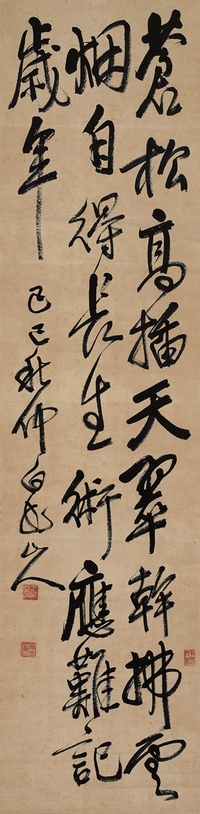 蒼松高插天翠幹拂雲
烟自得長生術應難記
歲年
己巳秋仲白龍山人